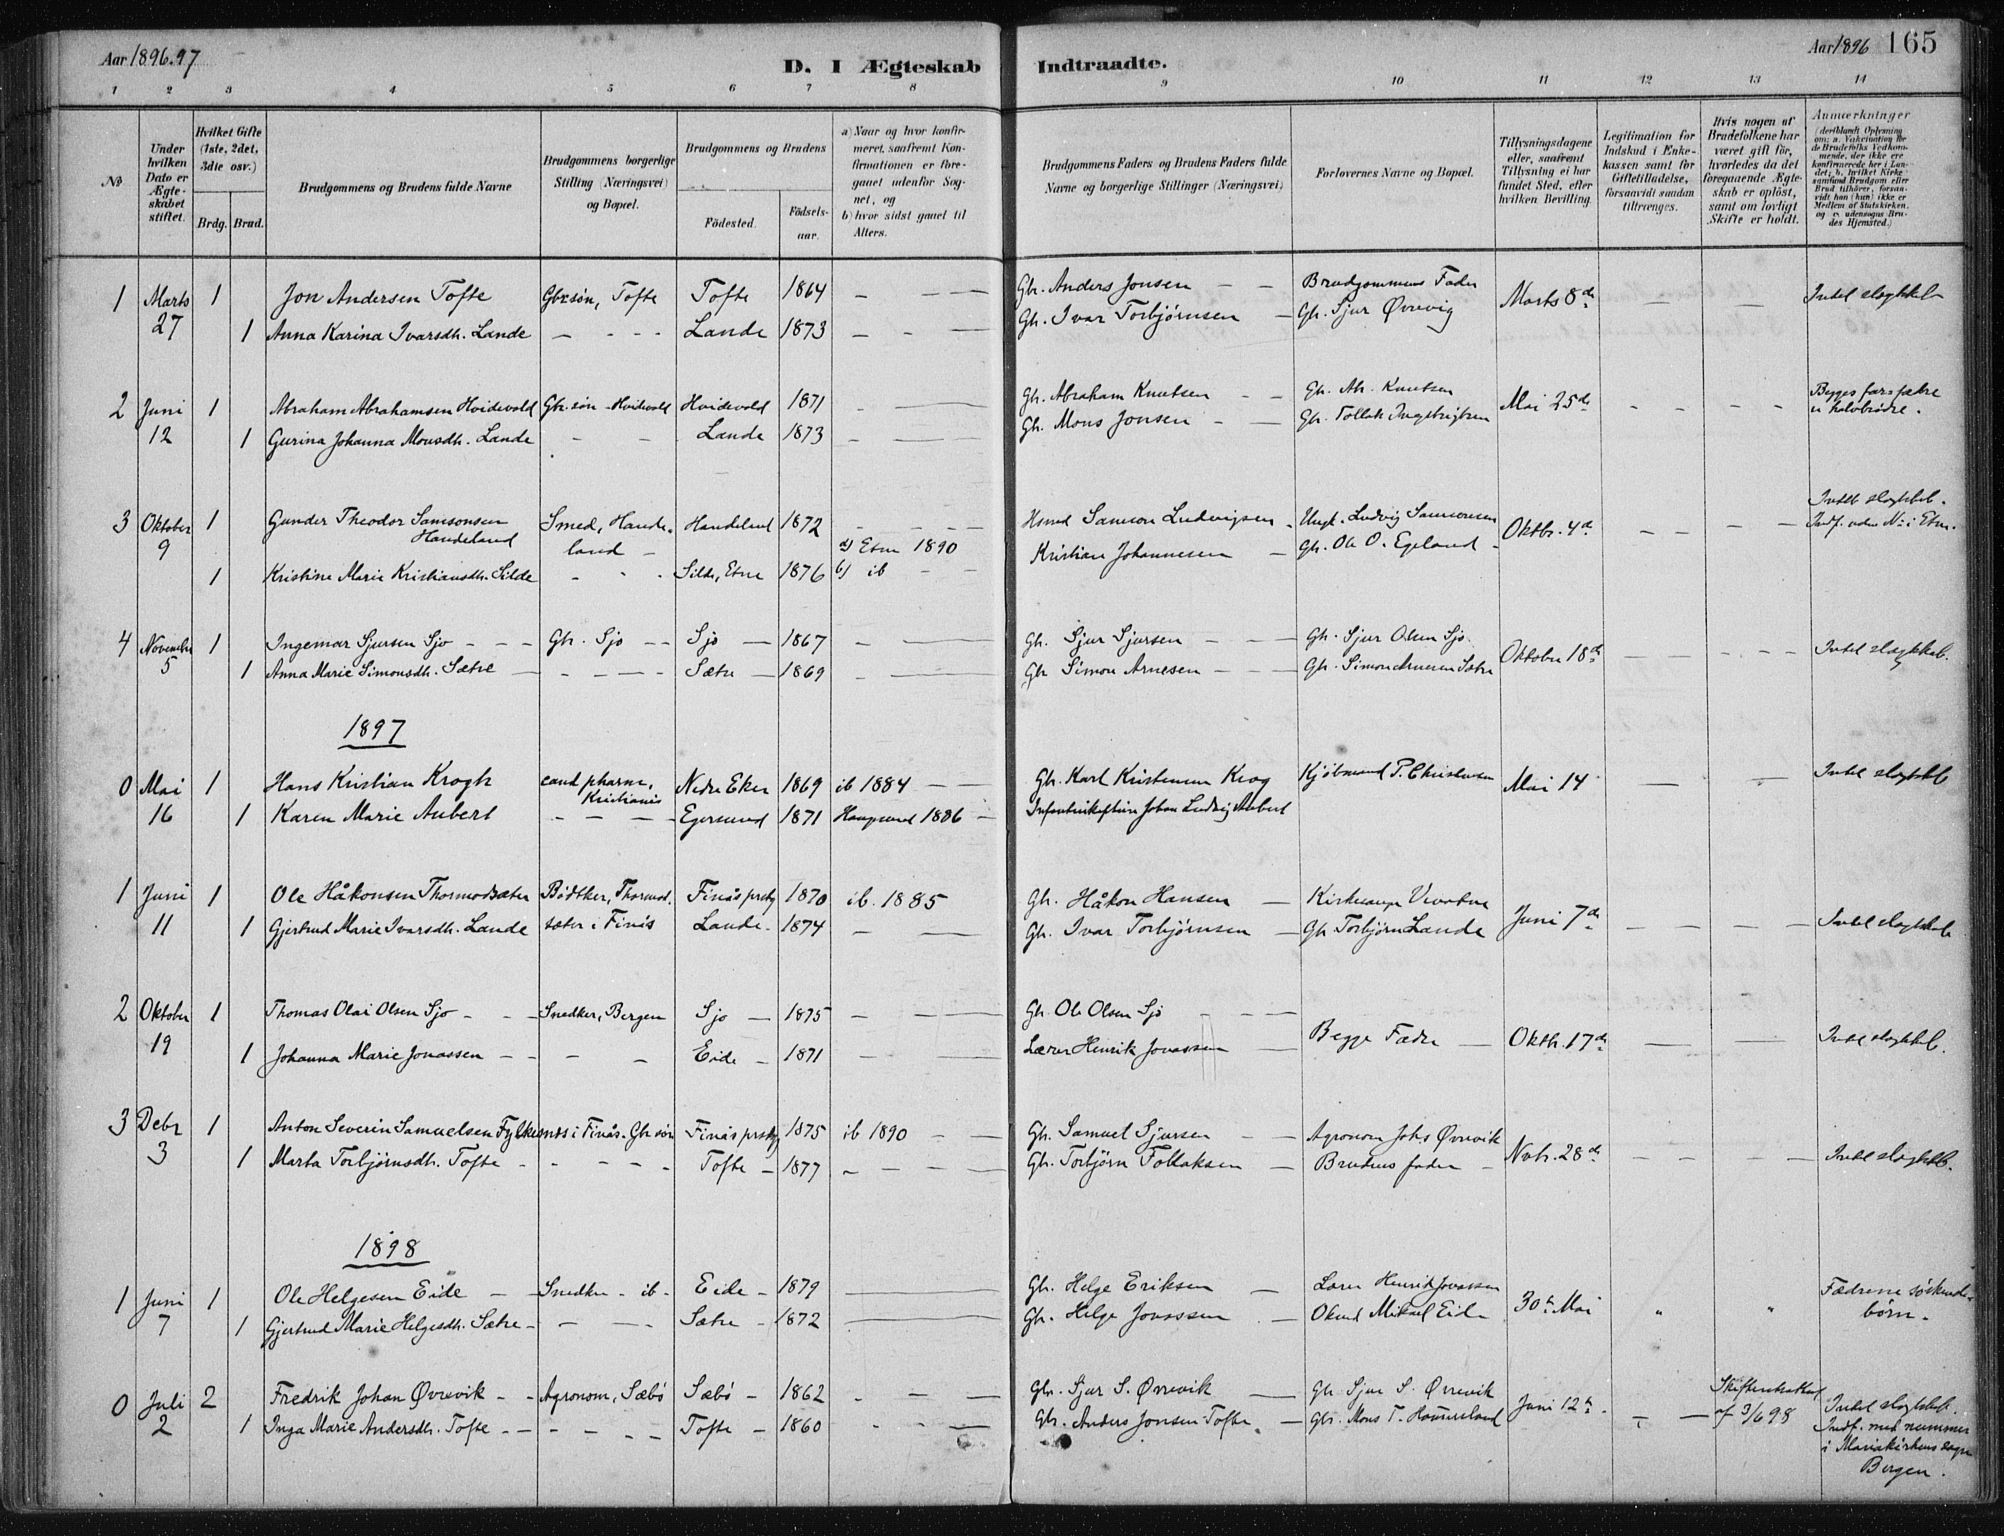 Aar 1896.97
D. I Ægteskab Indtraadte.
Aar 1896 165
1 2 3 4 5 6 7 8 9 10 11 12 13 14
№
Under hvilken Dato er Ægteskabet stiftet.
Hvilket Gifte (1ste, 2det, 3die osv.)
Brdg. Brud.
Brudgommens og Brudens fulde Navne
Brudgommens borgerlige Stilling (Næringsvei) og Bopæl.
Brudgommens og Brudens
Fødested.
Fødselsaar.
a) Naar og hvor konfirmeret, saafremt Konfirmationen er foregaaet udenfor Sognet, og
b) hvor sidst gaaet til Alters.
Brudgommens Faders og Brudens Faders fulde Navne og borgerlige Stillinger (Næringsvei)
Forlovernes Navne og Bopæl.
Tillysningsdagene eller, saafremt Tillysning ei har fundet Sted, efter hvilken Bevilling.
Legitimation for Indskud i Enkekassen samt for Giftetilladelse, forsaavidt saadan tiltrænges.
Hvis nogen af Brudefolkene har været gift før, hvorledes da det foregaaende Ægteskab er opløst, samt om lovligt Skifte er holdt.
Anmærkninger (deriblandt Oplysning om: a. Vakcination for de Brudefolks Vedkommende, der ikke ere konfirmerede her i Landet; b. hvilket Kirkesamfund Brudgom eller Brud tilhører, forsaavidt han (hun) ikke er Medlem af Statskirken, og c. udensogns Brudes Hjemsted.)
1 Marts 1 Jon Andersen Tofte Gbr.søn, Tofte Tofte 1864 — — — Gbr. Anders Jonsen — — Brudgommens Fader Marts 8de — — Intet slægtskab
27 1 Anna Karina Ivarsdtr. Lande — - - - Lande 1873 — — — Gbr. Ivar Torbjørnsen — Gbr. Sjur Øvrevig
2 Juni 1 Abraham Abrahamsen Hvidevold Gbr.søn - Hvidevold Hvidevold 1871 - — Gbr. Abraham Knutsen - - Gbr. Abr. Knutsen Mai 25de - - - - Begges farsfædre er halvbrødre.
12 1 Gurina Johanna Monsdtr. Lande - - Lande 1873 - — Gbr. Mons Jonsen - — Gbr. Tollak Ingebrigtsen
3 Oktober 1 Gunder Theodor Samsonsen Handeland Smed, Handeland - Handeland 1872 - - - Husmd Samson Ludvigsen - Ungk. Ludvig Samsonsen Oktbr. 4de - - — Intet slægtskb. Indf. uden No i Etne.
9 1 Kristine Marie Kristiansdtr. Silde - - - Silde, Etne 1876 a) Etne 1890 b) ib — — Kristian Johannesen — Gbr. Ole O. Egeland -
4 November 1 Ingemar Sjursen Sjo - - - Gbr. Sjo — Sjo — 1867 - — Gbr. Sjur Sjursen - - — Gbr. Sjur Olsen Sjo. Oktober 18de — - - - Intet slægtskab.
5 1 Anna Marie Simonsdtr. Sætre — - - — - Sætre 1869 - — Gbr Simon Arnesen - - — Gbr. Simon Arnesen Sætre
1897
0 Mai 1 Hans Kristian Krogh cand pharm, Kristiania Nedre Eker 1869 ib 1884 - — Gbr. Karl Kristensen Krog Kjøbmand P. Christensen Mai 14 — - Intet slægtskb
16 1 Karen Marie Aubert - - - - Egersund 1871 Haugesund 1886 - Johan Ludvig Aubert
1 Juni 1 Ole Håkonsen Thormodsæter Bødtker, Thormodsæter i Finås Finås prstgj 1870 ib. 1885 Gbr. Håkon Hansen — Kirkesanger Juni 7de - - - - Intet slægtskab
11 1 Gjertrud Marie Ivarsdtr. Lande Lande - 1874 - — Gbr. Ivar Torbjørnsen — Gbr Torbjørn Lande
2 Oktober 1 Thomas Olai Olsen Sjo - - Snedker, Bergen Sjo — 1875 - — Gbr. Ole Olsen Sjo - - — Begge Fædre — Oktbr. 17de — — Intet slægtskb.
19 1 Johanna Marie Jonassen - - - - Eide - 1871 — — Lærer Henrik Jonassen —
3 Debr 1 Anton Severin Samuelsen Fylkesnes i Finås. Gbr søn Finås prstgj 1875 ib 1890 - — Gbr. Samuel Sjursen — Agronom Johs Øvrevik Novbr. 28de - - - - Intet slægtskb.
3 1 Marta Torbjørnsdtr. Tofte - - - - Tofte - 1877 - - — Gbr. Torbjørn Tollaksen — Brudens fader -
1898
1 Juni 1 Ole Helgesen Eide - - Snedker - ib - Eide - 1879 — Gbr. Helge Eriksen — Lærer Henrik Jonassen 30te Mai " " Fædrene søskendebørn.
7 1 Gjertrud Marie Helgesdtr. Sætre - - - - Sætre - 1872 — Gbr. Helge Jonassen - Mikael Eide
0 Juli 2 Fredrik Johan Øvrevik - - Agronom, Sæbø Sæbø - 1862 - - — Gbr. Sjur S. Øvrevik — Gbr Sjur S. Øvrevik Juni 12te - — af 3/6 98 Intet slægtskb. Indf. med nummer i Mariakirkens sogn Bergen.
2 1 Inga Marie Andersdtr. Tofte - - - - Tofte - 1860 - - — Gbr. Anders Jonsen Tofte - Gbr. Mons T. Hammersland